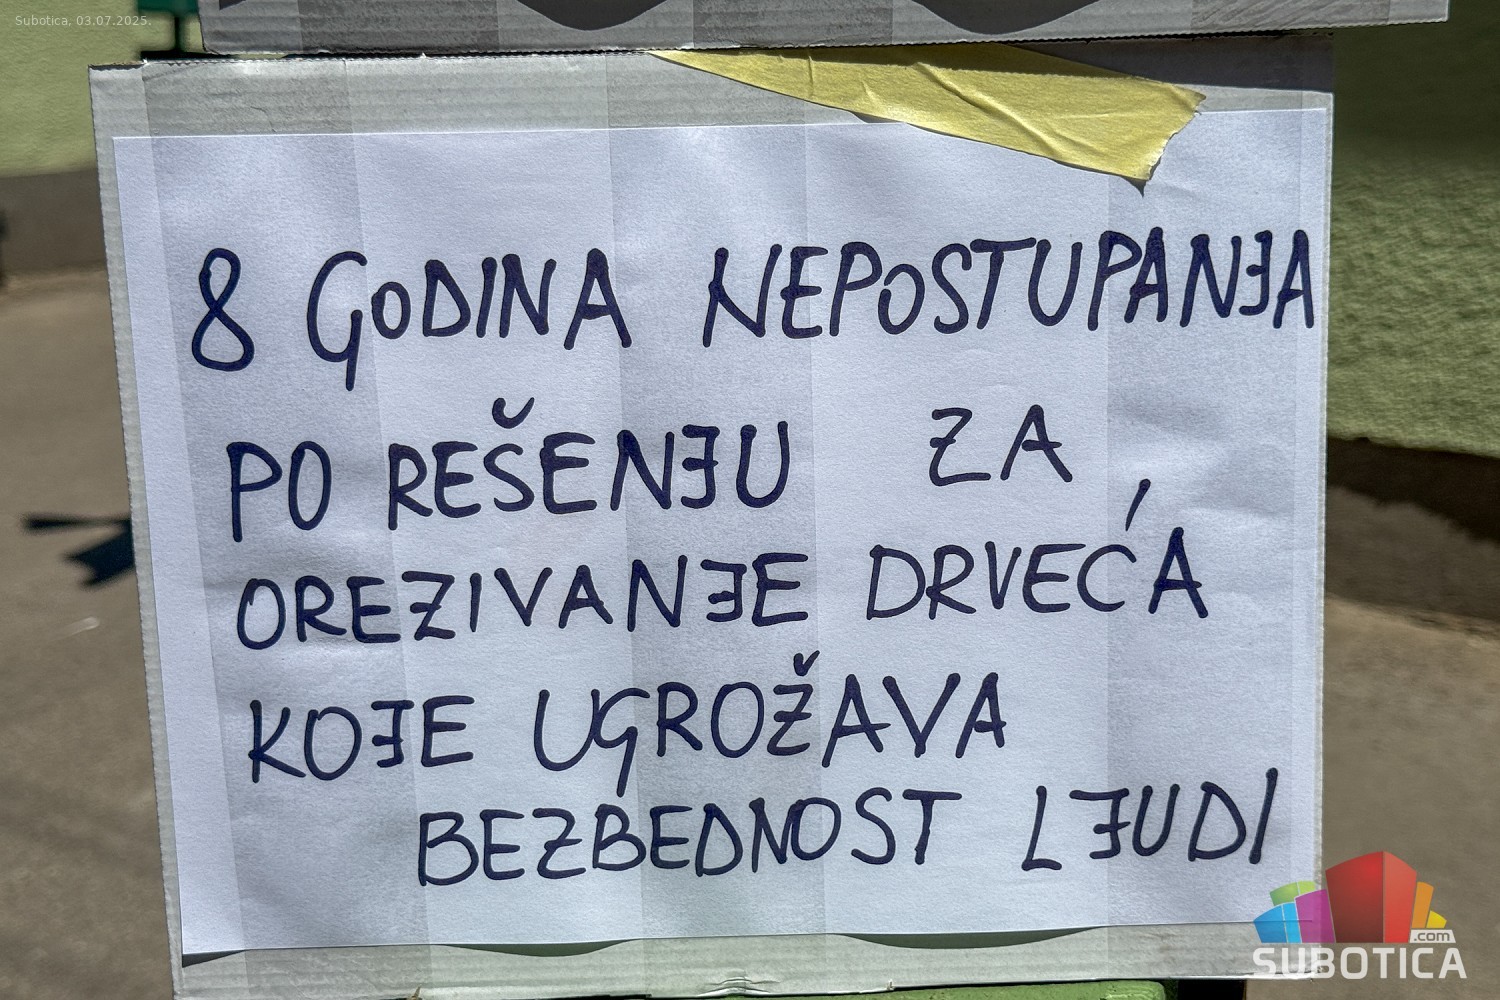 Subotica, 03.07.2025.
8 GODINA NEPOSTUPANJA
PO REŠENJU ZA
OREZIVANJE DRVEĆA
KOJE UGROŽAVA
BEZBEDNOST LJUDI
.com
SUBOTICA